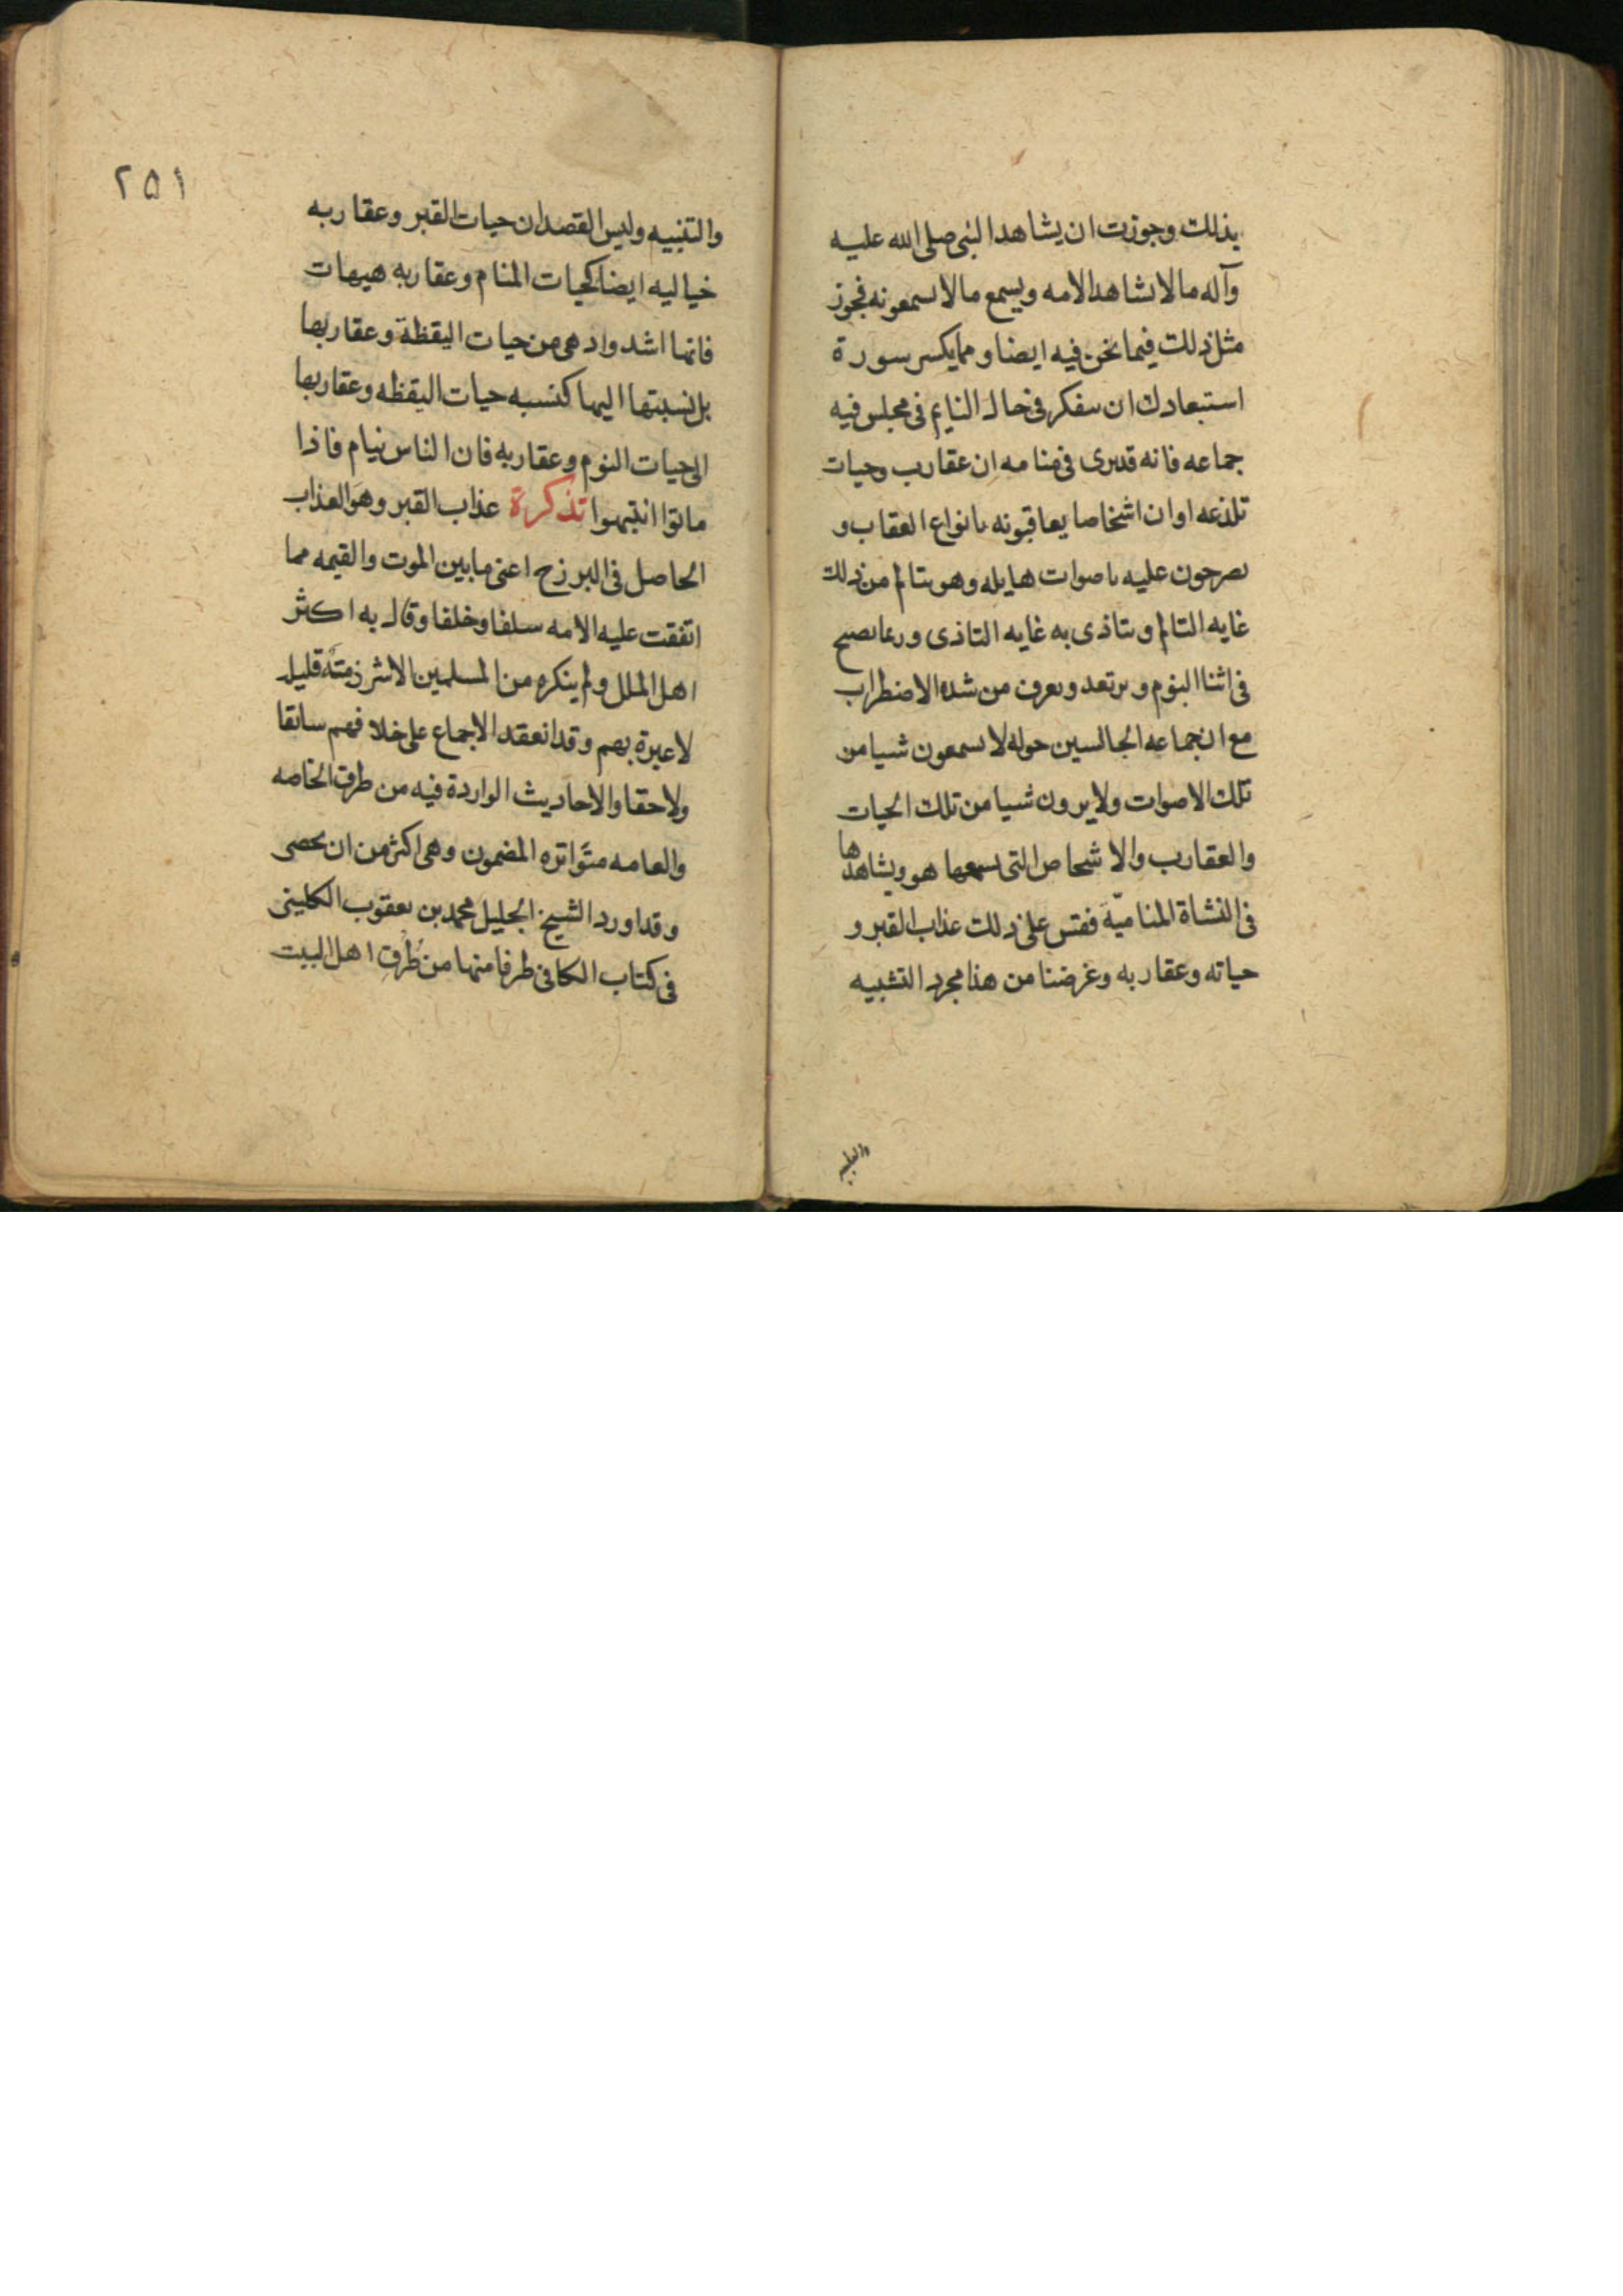 بذلك وجوزت ان يشاهد النبى صلى الله عليه
وآله ما لا يشاهد الامه ويسمع ما لا يسمعونه فجوز
مثل ذلك فيما نحن فيه ايضا ومما يكسر سورة
استبعادك ان تتفكر فى حال النايم فى مجلس فيه
جماعه فانه قد يرى فى منامه ان عقارب وحيات
تلذعه او ان اشخاصا يعاقبونه بانواع العقاب و
يصرخون عليه باصوات هايله وهو يتالم من ذلك
غايه التالم ويتاذى به غايه التاذى وربما يصيح
فى اثنا النوم ويرتعد ويعرق من شده الاضطراب
مع ان جماعه الجالسين حوله لا يسمعون شيا من
تلك الاصوات ولا يرون شيا من تلك الحيات
والعقارب والاشخاص التى يسمعها هو ويشاهدها
فى النشاة المناميّة فقس على ذلك عذاب القبر و
حياته وعقاربه وغرضنا من هذا مجرد التشبيه
٢٥١
والتنبيه وليس القصد ان حيات القبر وعقاربه
خياليه ايضا كحيات المنام وعقاربه هيهات
فانها اشد وادهى من حيات اليقظة وعقاربها
بل نسبتها اليها كنسبه حيات اليقظه وعقاربها
الى حيات النوم وعقاربه فان الناس نيام فاذا
ماتوا انتبهوا تذكرة عذاب القبر وهو العذاب
الحاصل فى البرزخ اعنى ما بين الموت والقيمه مما
اتفقت عليه الامه سلفا وخلفا وقال به اكثر
اهل الملل ولم ينكره من المسلمين الا شرذمة قليل
لا عبرة بهم وقد انعقد الاجماع على خلافهم سابقا
ولاحقا والاحاديث الواردة فيه من طرق الخاصه
والعامه متواتره المضمون وهى اكثر من ان يحصى
وقد اورد الشيخ الجليل محمد بن يعقوب الكلينى
فى كتاب الكافى طرفا منها من طُرق اهل البيت